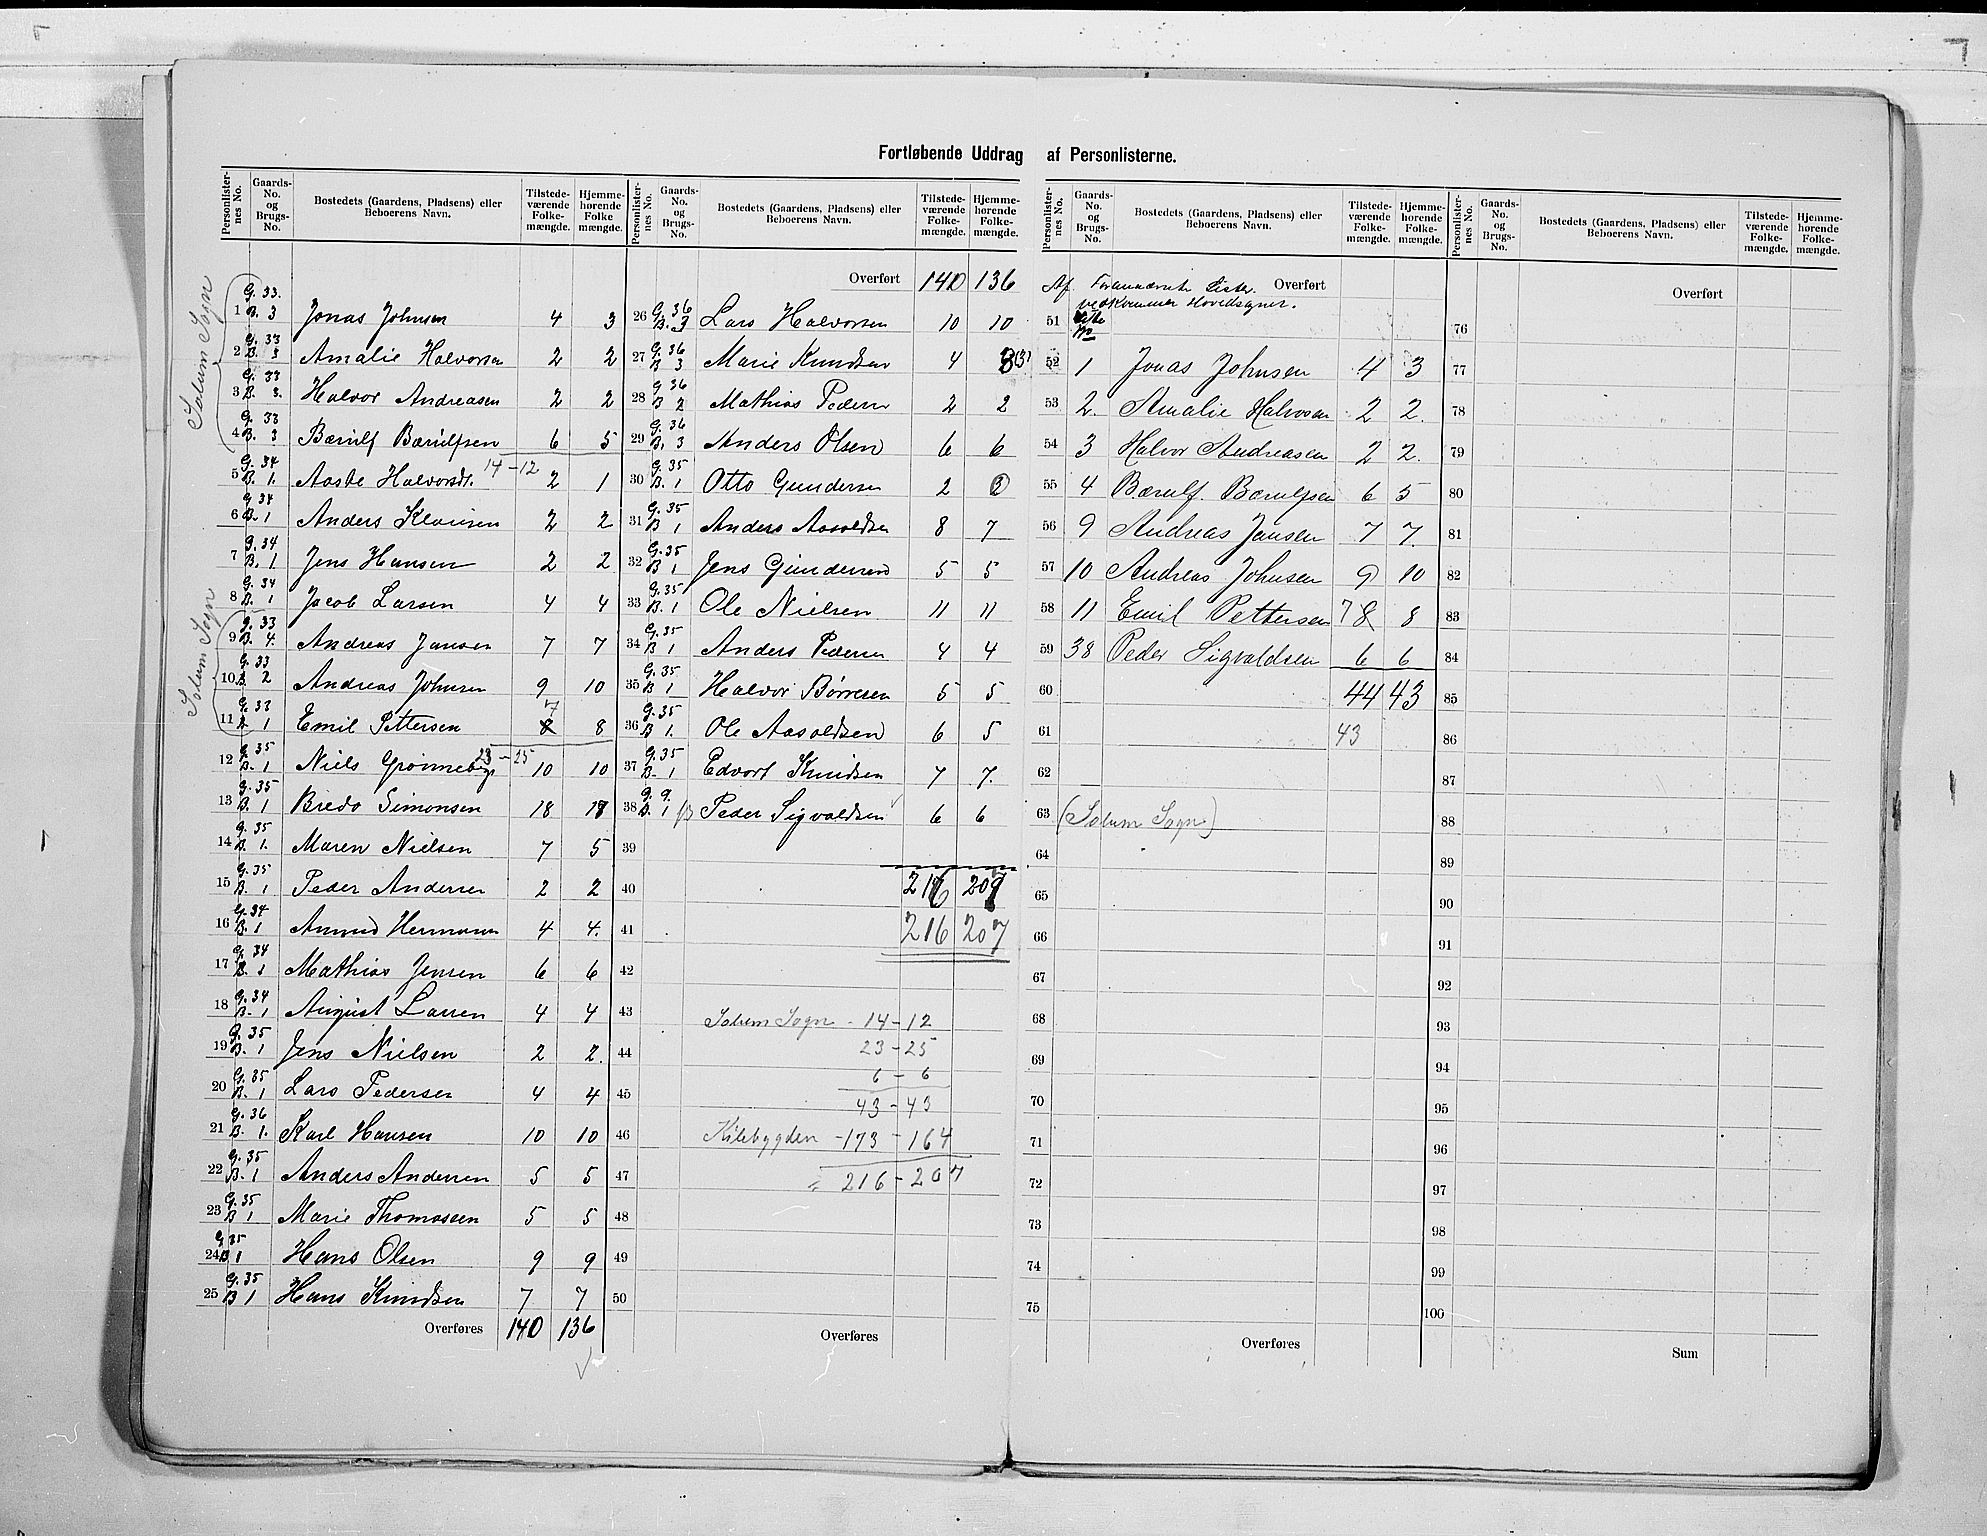 Fortløbende Uddrag af Personlisterne.
Personlisternes No. Gaards-No. og Brugs-No. Bostedets (Gaardens, Pladsens) eller Beboerens Navn. Tilstedeværende Folkemængde. Hjemmehørende Folkemængde.
Solum Sogn
1 G. 33. B. 3 Jonas Johnsen 4 3
2 G. 33 B. 3 Amalie Halvorsen 2 2
3 G. 33 B. 3. Halvor Andreasen 2 2
4 G. 33 B. 3 Bærulf Bærulfsen 6 5
14-12
5 G. 34 B. 1. Aaste Halvorsdt. 2 1
6 G. 34 B. 1 Anders Klausen 2 2
7 G. 34 B. 1 Jens Hansen 2 2
8 G. 34 B. 1 Jacob Larsen 4 4
Solum Sogn
9 G. 33 B. 4. Andreas Jansen 7 7
10 G. 33 B. 2 Andreas Johnsen 9 10
11 G. 33 B. 1 Emil Pettersen 7 8 8
23-25
12 G. 35 B. 1 Niels Grønneberg 10 10
13 G. 35 B. 1 Bredo Simonsen 18 17
14 G. 35 B. 1. Maren Nielsen 7 5
15 G. 35 B. 1 Peder Andersen 2 2
16 G. 34 B. 1 Amund Hermansen 4 4.
17 G. 34 B. 1 Mathias Jensen 6 6
18 G. 34 B. 1 August Larsen 4 4
19 G. 35 B. 1 Jens Nielsen 2 2.
20 G. 35 B. 1 Lars Pedersen 4 4
21 G. 36 B. 1. Karl Hansen 10 10
22 G. 35 B. 1 Anders Andersen 5 5
23 G. 35 B 1 Marie Thomassen 5 5
24 G. 35 B 1 Hans Olsen 9 9
25 G. 35 B 1 Hans Knudsen 7 7
Overføres 140 136
Personlisternes No. Gaards-No. og Brugs-No. Bostedets (Gaardens, Pladsens) eller Beboerens Navn. Tilstedeværende Folkemængde. Hjemmehørende Folkemængde.
Overført 140 136
26 G. 36 B. 3 Lars Halvorsen 10 10
27 G. 36 B 3 Marie Knudsen 4 3 (3)
28 G 36 B 2 Mathias Pedersen 2 2
29 G. 36 B. 3 Anders Olsen 6 6
30 G. 35 B. 1 Otto Gundersen 2 2
31 G. 35 B 1 Anders Aasoldsen 8 7
32 G. 35 B 1 Jens Gundersen 5 5
33 G. 35 B. 1 Ole Nielsen 11 11
34 G. 35 B 1 Anders Pedersen 4 4
35 G. 35 B 1 Halvor Børresen 5 5
36 G. 35 B 1. Ole Aasoldsen 6 5
37 G. 35 B. 1 Edvart Knudsen 7 7.
38 G. 9. B. 1 Peder Sigvaldsen 6 6
39
40 216 207
41 216 207
42
43 Solum Sogn - 14-12
44 23-25
6-6
45 43-43
46 Kilebygden - 173 - 164
47 = 216-207
48
49
50
Overføres
Personlisternes No. Gaards-No. og Brugs-No. Bostedets (Gaardens, Pladsens) eller Beboerens Navn. Tilstedeværende Folkemængde. Hjemmehørende Folkemængde.
Overført
Af Forannævnte Lister
vedkommer Hovedsognet.
51 Liste No
52 1 Jonas Johnsen 4 3
53 2. Amalie Halvorsen 2 2.
54 3 Halvor Andreasen 2 2.
55 4 Bærulf Bærulfsen 6 5
56 9 Andreas Jansen 7 7.
57 10 Andreas Johnsen 9 10
58 11 Emil Pettersen 7 8 8
59 38 Peder Sigvaldsen 6 6
60 44 43
61 43
62
63 (Solum Sogn)
64
65
66
67
68
69
70
71
72
73
74
75
Overføres
Personlisternes No. Gaards-No. og Brugs-No. Bostedets (Gaardens, Pladsens) eller Beboerens Navn. Tilstedeværende Folkemængde. Hjemmehørende Folkemængde.
Overført
76
77
78
79
80
81
82
83
84
85
86
87
88
89
90
91
92
93
94
95
96
97
98
99
100
Sum